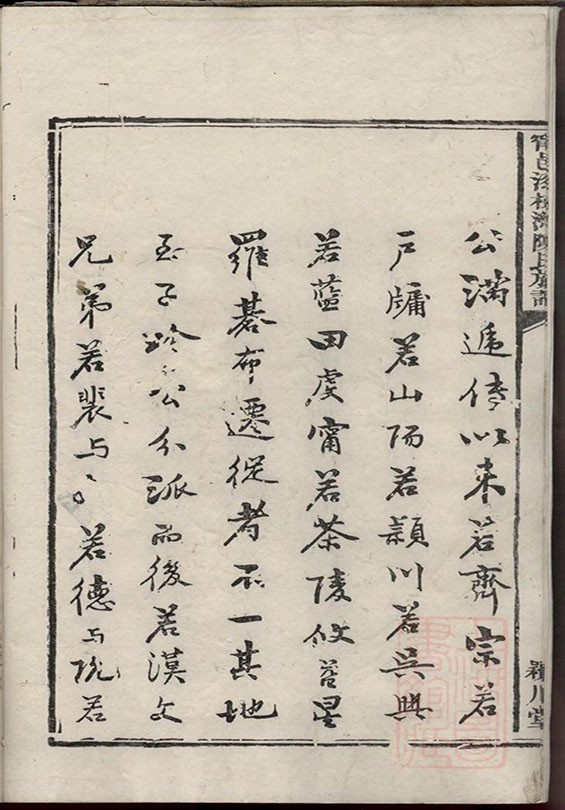 公滿遞傳以来若齊宗若
戶牖若山陽若潁川若吳興
若藍田虔甯若茶陵攸若星
羅碁布遷從者不一其地
至子公分派而後若漢文
兄弟若裴与若德与若
甯邑陳氏族譜
潁川堂